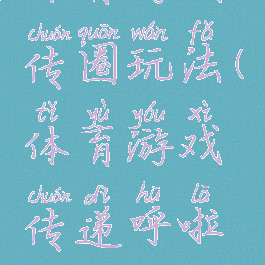 chuán quān wán fǎ
传圈玩法(
tǐ yù yóu xì
体育游戏
chuán dì hū lā
传递呼啦